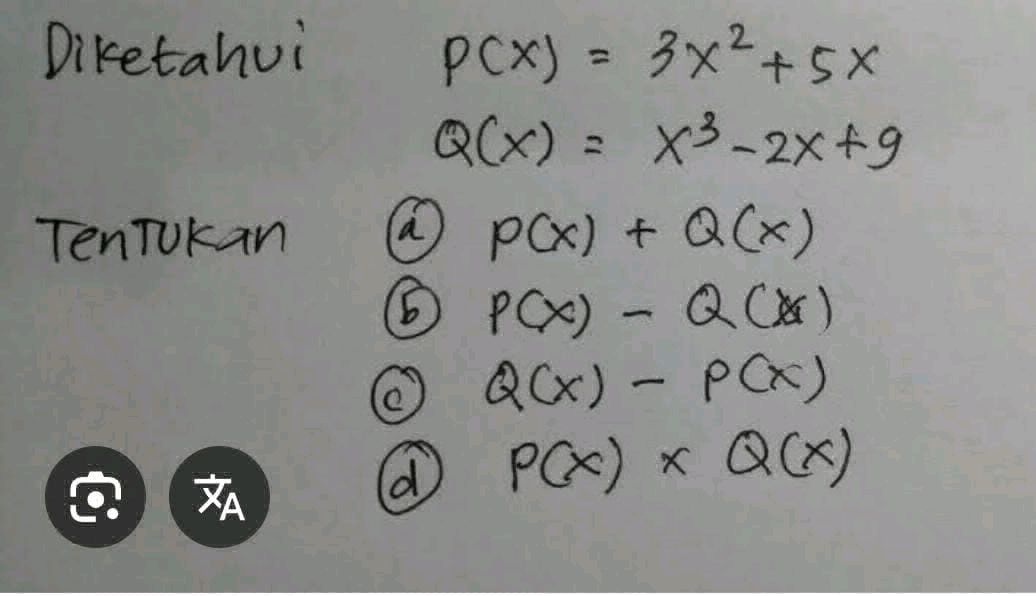 Diketahui P(x) = 3x² + 5x
Q(x) = x³ - 2x + 9
Tentukan ⓐ P(x) + Q(x)
ⓑ P(x) - Q(x)
ⓒ Q(x) - P(x)
ⓓ P(x) x Q(x)
文A